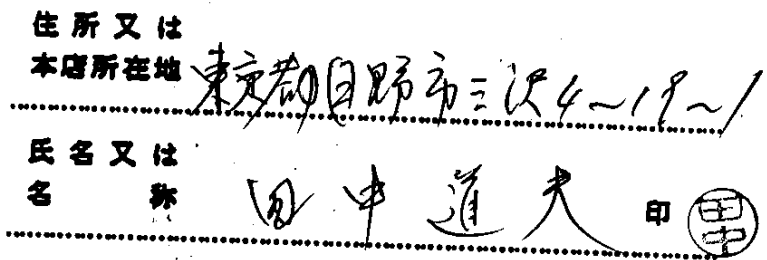 住所又は
本店所在地 東京都日野市三沢4~19~1
氏名又は
名称 田中道夫 印 田中